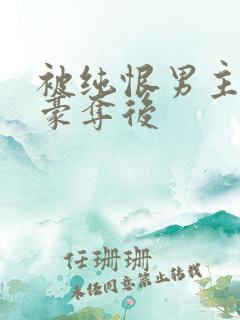 被纯恨男主
豪夺後
任珊珊
未经同意禁止转载